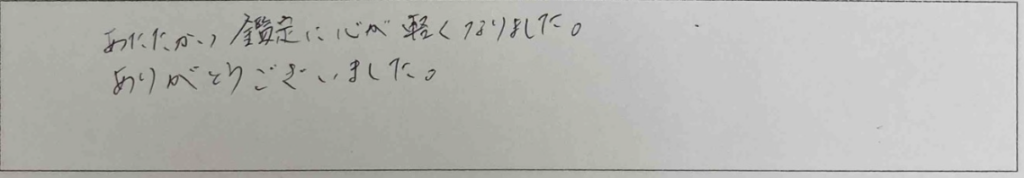 あたたかい鑑定に心が軽くなりました。
ありがとうございました。